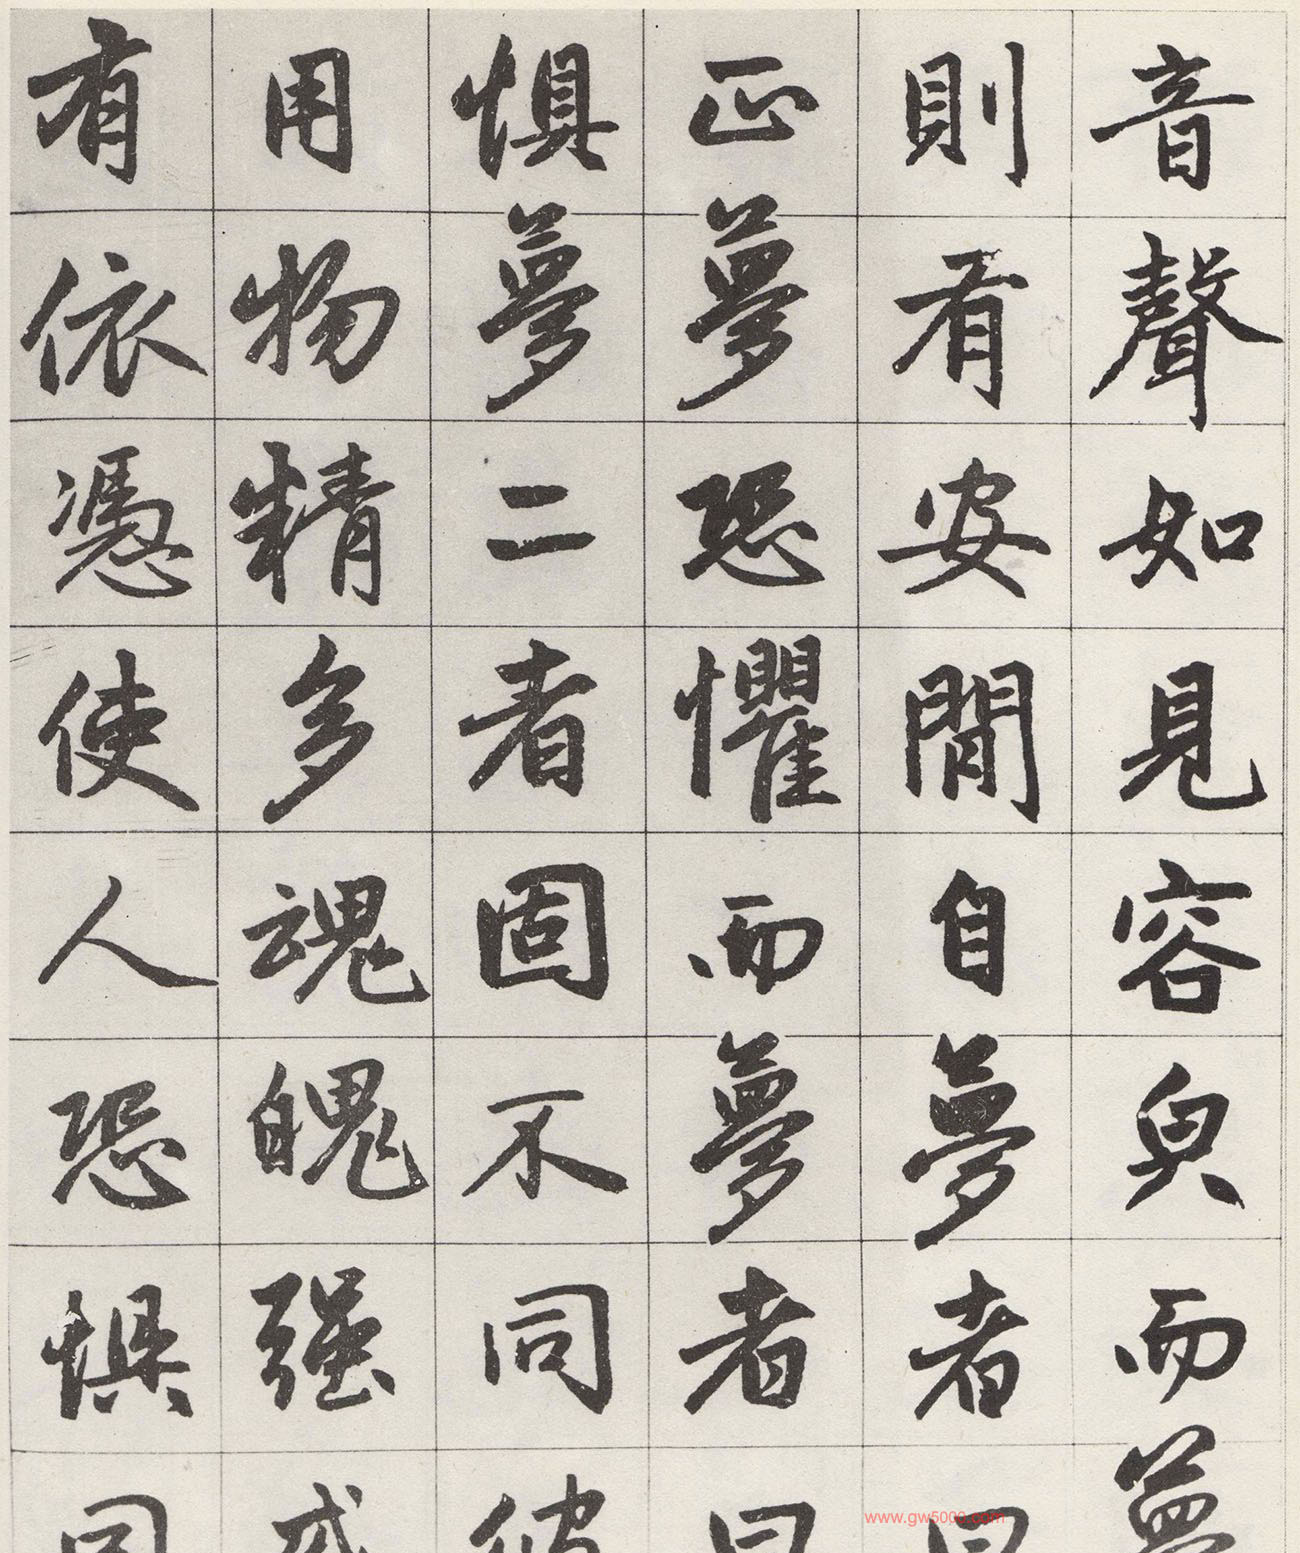 音聲如見容皃而夢
則有安閒自夢者曰
正夢恐懼而夢者曰
惧夢二者固不同
用物精多魂魄强
有依憑使人恐惧同
www.gw5000.com